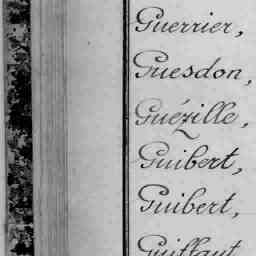 Guerrier,
Guesdon,
Guézille,
Guibert,
Guibert,
Guiffaut